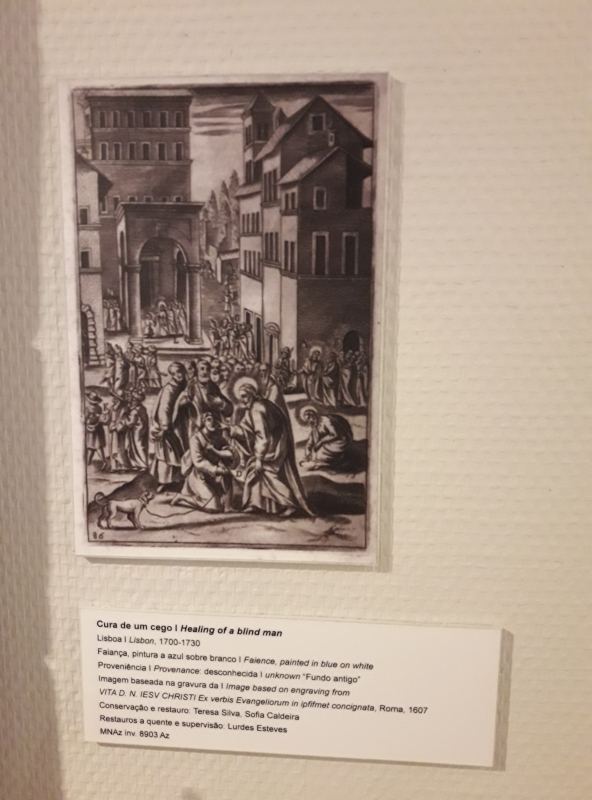 86
Cura de um cego I Healing of a blind man
Lisboa I Lisbon, 1700-1730
Faiança, pintura a azul sobre branco I Faience, painted in blue on white
Proveniência I Provenance: desconhecida I unknown "Fundo antigo"
Imagem baseada na gravura da I Image based on engraving from
VITA D. N. IESV CHRISTI Ex verbis Evangeliorum in ipfifmet concignata, Roma, 1607
Conservação e restauro: Teresa Silva, Sofia Caldeira
Restauros a quente e supervisão: Lurdes Esteves
MNAz inv. 8903 Az